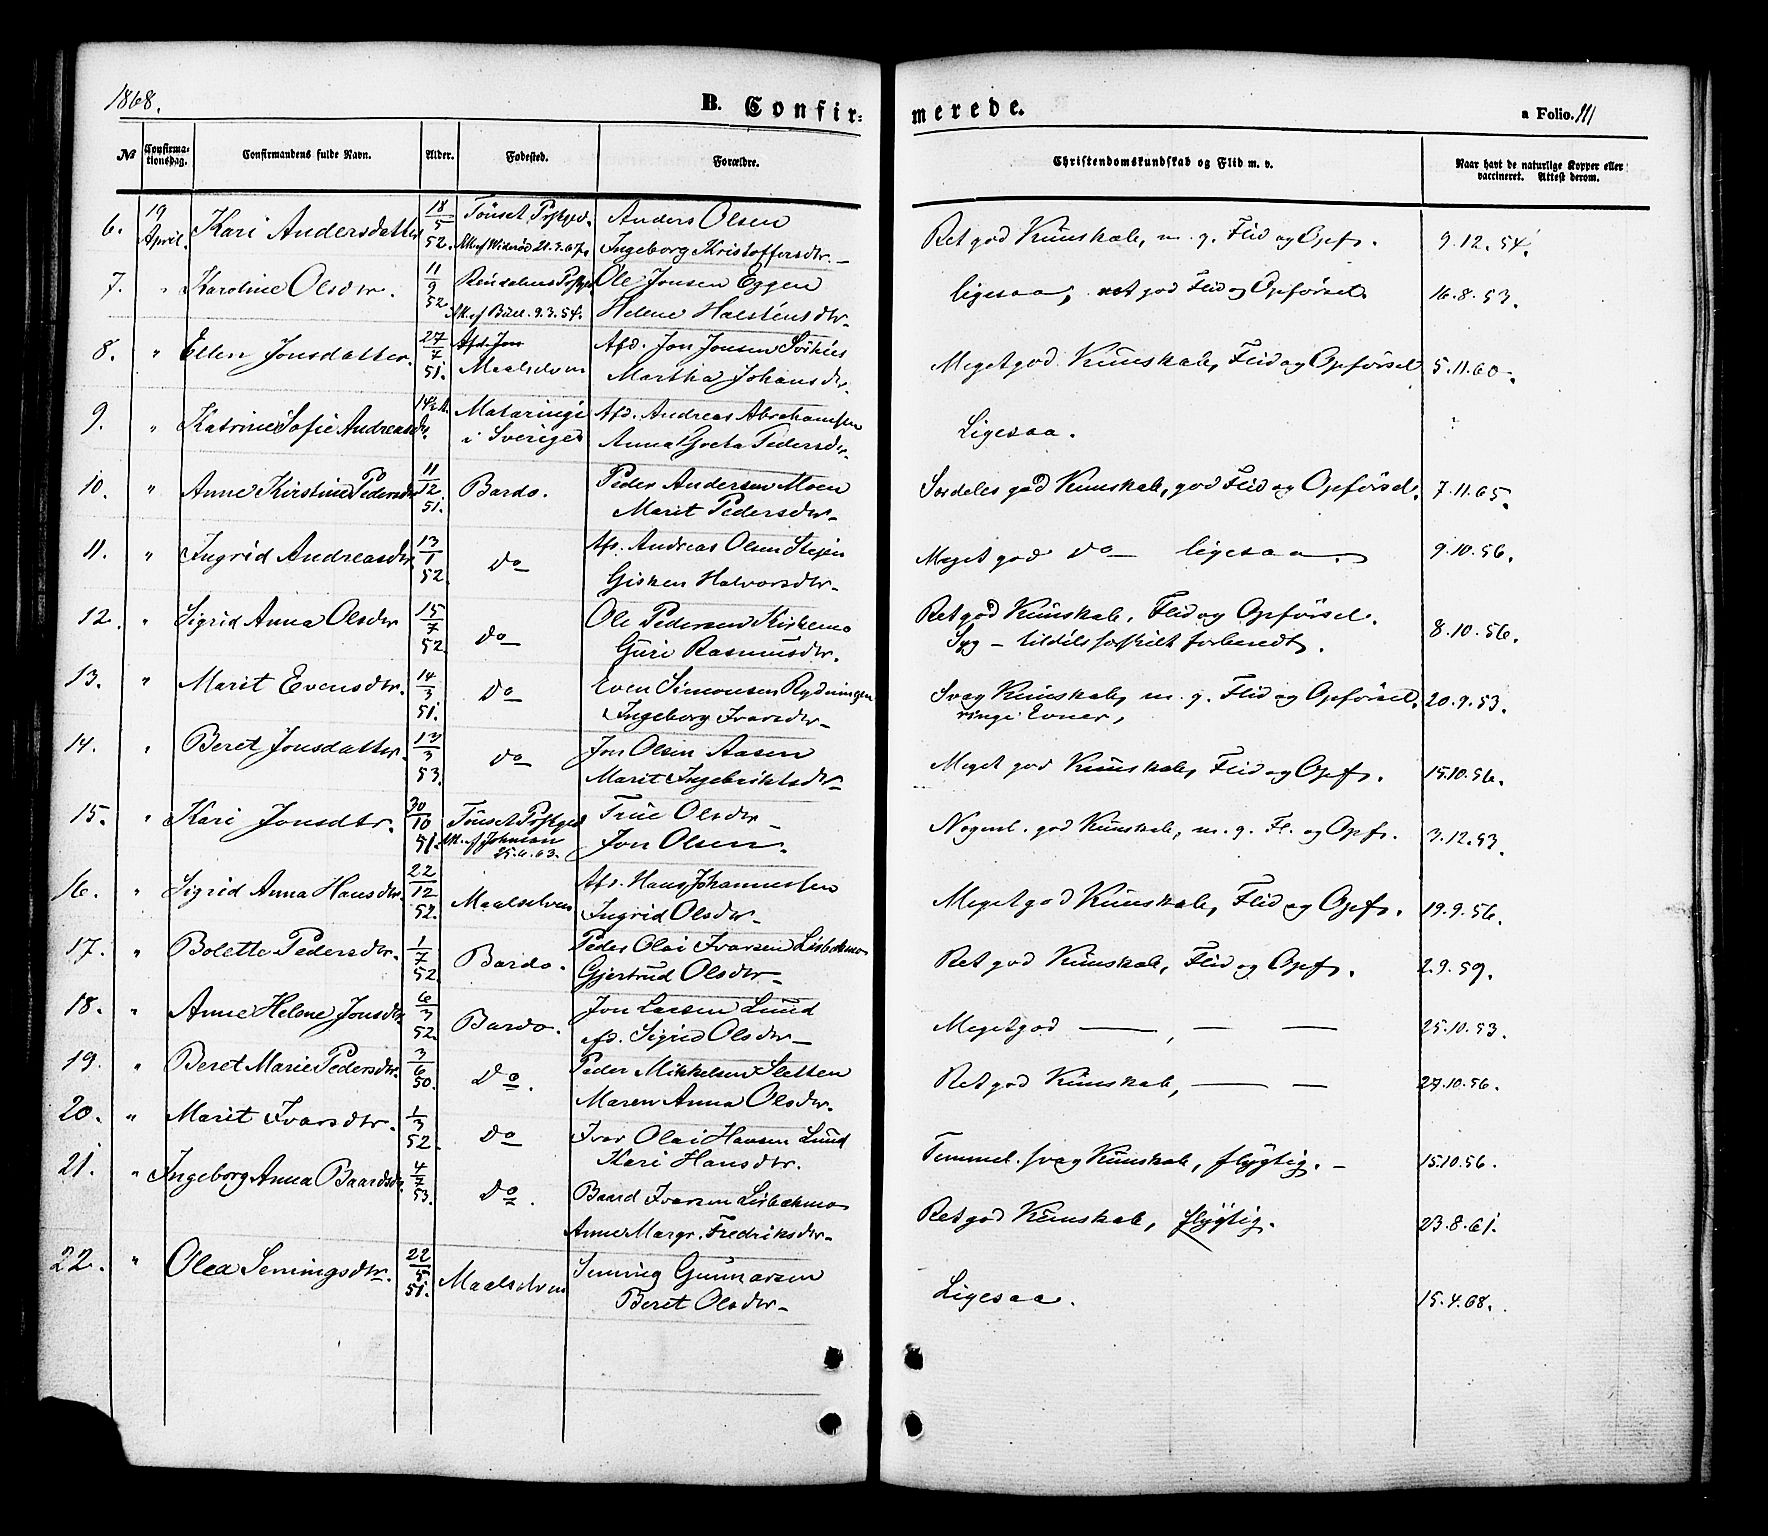 1868.
B. Confir-
merede.
a Folio. 111
No
Confirma-
tionsdag.
Confirmandens fulde Navn.
Alder.
Fødested.
Forældre.
Christendomskundskab og Flid m. v.
Naar havt de naturlige Kopper eller
vaccineret. Attest derom.
6. 19 April. Kari Andersdatter 18/5 52. Tönset Pgjeld. 21.3.67. Anders Olsen
Ingeborg Kristoffersdtr.
Ret god Kunskab, m. g. Flid og Opfs. 9.12.54.
7. " Karoline Olsdtr. 11/9 52. Rendalens 9.3.54. Ole Jonsen Eggen
Helene Halstensdtr.
ligesaa, ret god Flid og Opförsel. 16.8.53.
8. " Ellen Jonsdatter. 27/4 51. Maalselven Afd. Jon Jonsen
Martha Johansdr.
Meget god Kunskab, Flid og Opförsel 5.11.60.
9. " Katrine Sofie Andreasdr. Mataringi
i Sverige Afd. Andreas Abrahamsen
Anna Greta Pedersdr.
Ligesaa.
10. " Anne Kirstine Pedersdtr 11/12 51. Bardo. Peder Andersen Moen
Marit Pedersdtr.
Særdeles god Kunskab, god Flid og Opförsel. 7.11.65.
11. " Ingrid Andreasdtr 13/1 52. do Afd. Andreas Olsen
Gisken Halvorsdtr.
Meget god do ligesaa. 9.10.56.
12. " Sigrid Anna Olsdtr 15/7 52. do Ole Pedersen Kirkemo
Guri Rasmusdtr.
Ret god Kunskab, Flid og Opförsel.
Syg - tildels forberedt. 8.10.56.
13. " Marit Evensdtr. 14/3 51. do Even Simonsen Rydningen
Ingeborg Ivarsdtr
Svag Kunskab, m. g. Flid og Opförsel, 20.9.53.
ringe Evner,
14. " Beret Jonsdatter. 13/3 53. do Jon Olsen Aasen
Marit Ingebriktsdtr
Meget god Kunskab, Flid og Opfs. 15.10.56.
15. " Kari Jonsdtr. 30/10 51. Tönset 25.6.63. True Olsdtr
Jon Olsen.
Nogenl. god Kunskab, m. g. Fl. og Opfs. 3.12.53.
16. " Sigrid Anna Hansdtr. 22/12 52. Maalselven Afd. Hans Johannessen
Ingrid Olsdtr
Meget god Kunskab, Flid og Opfs. 19.9.56.
17. " Bolette Pedersdtr. 1/7 52 Bardo. Peder Olai Ivarsen Lisbetmo
Gjertrud Olsdtr
Ret god Kunskab, Flid og Opfs. 2.9.59.
18. " Anne Helene Jonsdtr 6/3 52. Bardo. Jon Larsen Lund
Afd. Sigrid Olsdtr
Meget god — , — — 25.10.53.
19. " Beret Marie Pedersdtr. 3/6 50. do. Peder Mikkelsen Sletten
Maren Anna Olsdtr.
Ret god Kunskab, — — 27.10.56.
20. " Marit Ivarsdtr. 1/3 52. do Ivar Olai Hansen Lund
Kari Hansdtr.
Temmel. svag Kunskab, flygtig. 15.10.56.
21. " Ingeborg Anna Baardsdr. 4/7 53. do. Baard Ivarsen Lisbethmo
Anne Margr. Fredriksdtr
Ret god Kunskab, flygtig. 23.8.61.
22. " Olea Senningsdtr. 22/5 51. Maalselven Senning Gunnarsen
Beret Olsdtr
Ligesaa. 15.4.68.